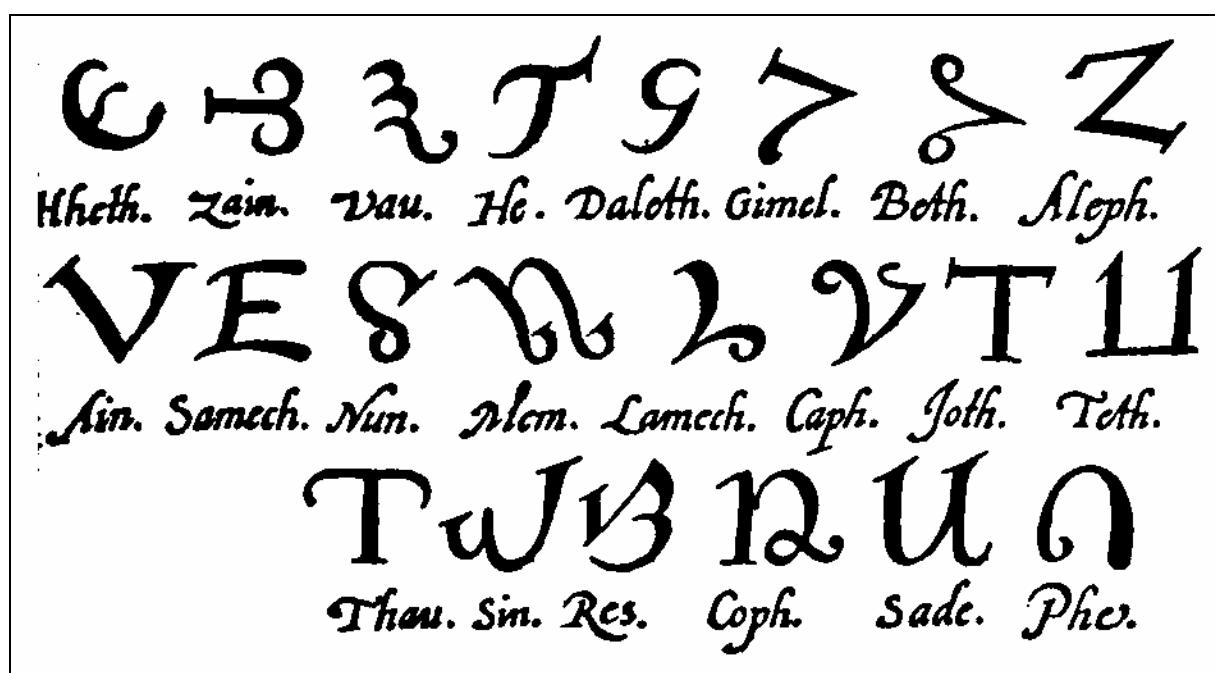 Hheth. Zain. Vau. He. Daleth. Gimel. Beth. Aleph.
Ain. Samech. Nun. Mem. Lamech. Caph. Joth. Teth.
Thau. Sin. Res. Coph. Sade. Phe.